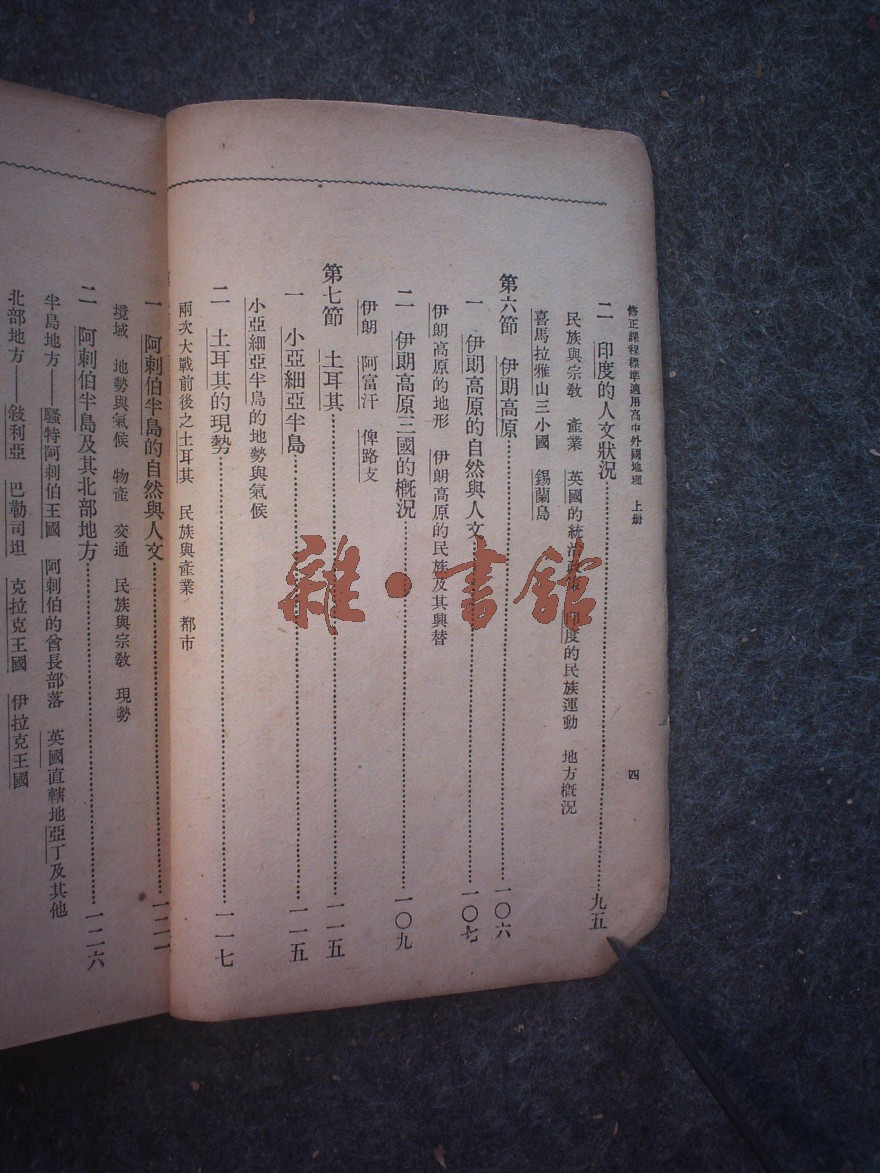 修正課程標準適用高中外國地理 上册
四
二 印度的人文狀況……九五
民族與宗敎 產業 英國的統治 印度的民族運動 地方槪況
喜馬拉雅山三小國 錫蘭島
第六節 伊朗高原……一〇六
一 伊朗高原的自然與人文……一〇七
伊朗高原的地形 伊朗高原的民族及其興替
二 伊朗高原三國的槪況……一〇九
伊朗 阿富汗 俾路支
第七節 土耳其……一一五
一 小亞細亞半島……一一五
小亞細亞半島的地勢與氣候
二 土耳其的現勢……一一七
兩次大戰前後之土耳其 民族與產業 都市
一 阿剌伯半島的自然與人文……
境域 地勢與氣候 物產 交通 民族與宗敎 現勢
二 阿剌伯半島及其北部地方……一二六
半島地方——騷特阿剌伯王國 阿剌伯的酋長部落 英國直轄地亞丁及其他
北部地方——敍利亞 巴勒司坦 克拉克王國 伊拉克王國
雜·書館